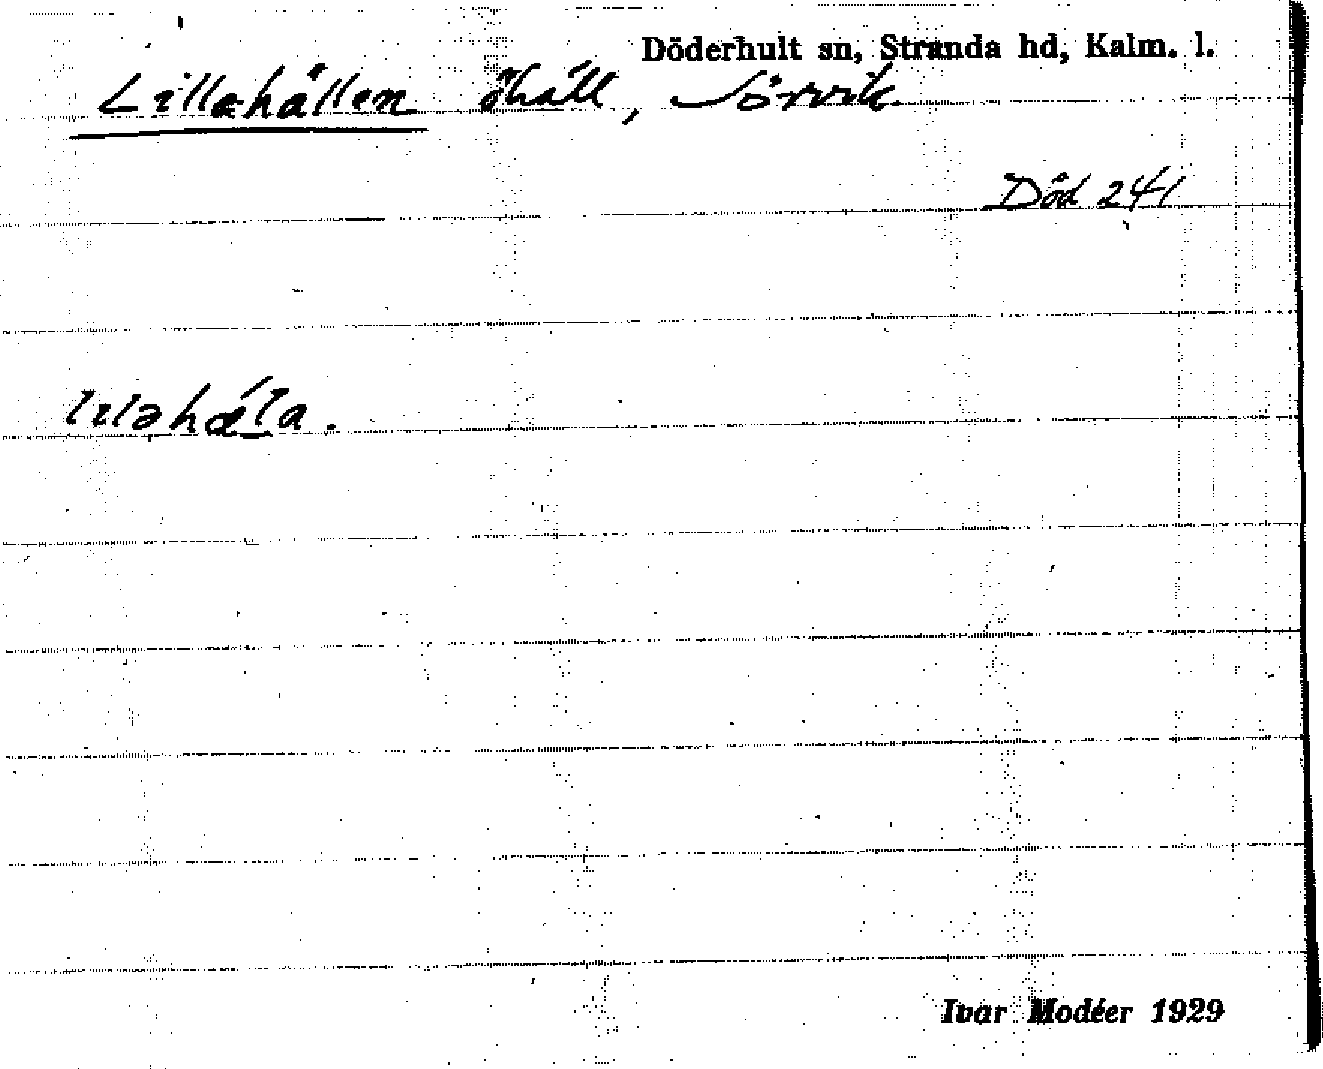 Döderhult sn, Stranda hd, Kalm. l.
Lillehällen häll, Sörvik
Död 241
lıləhæ´la.
Ivar Modéer 1929